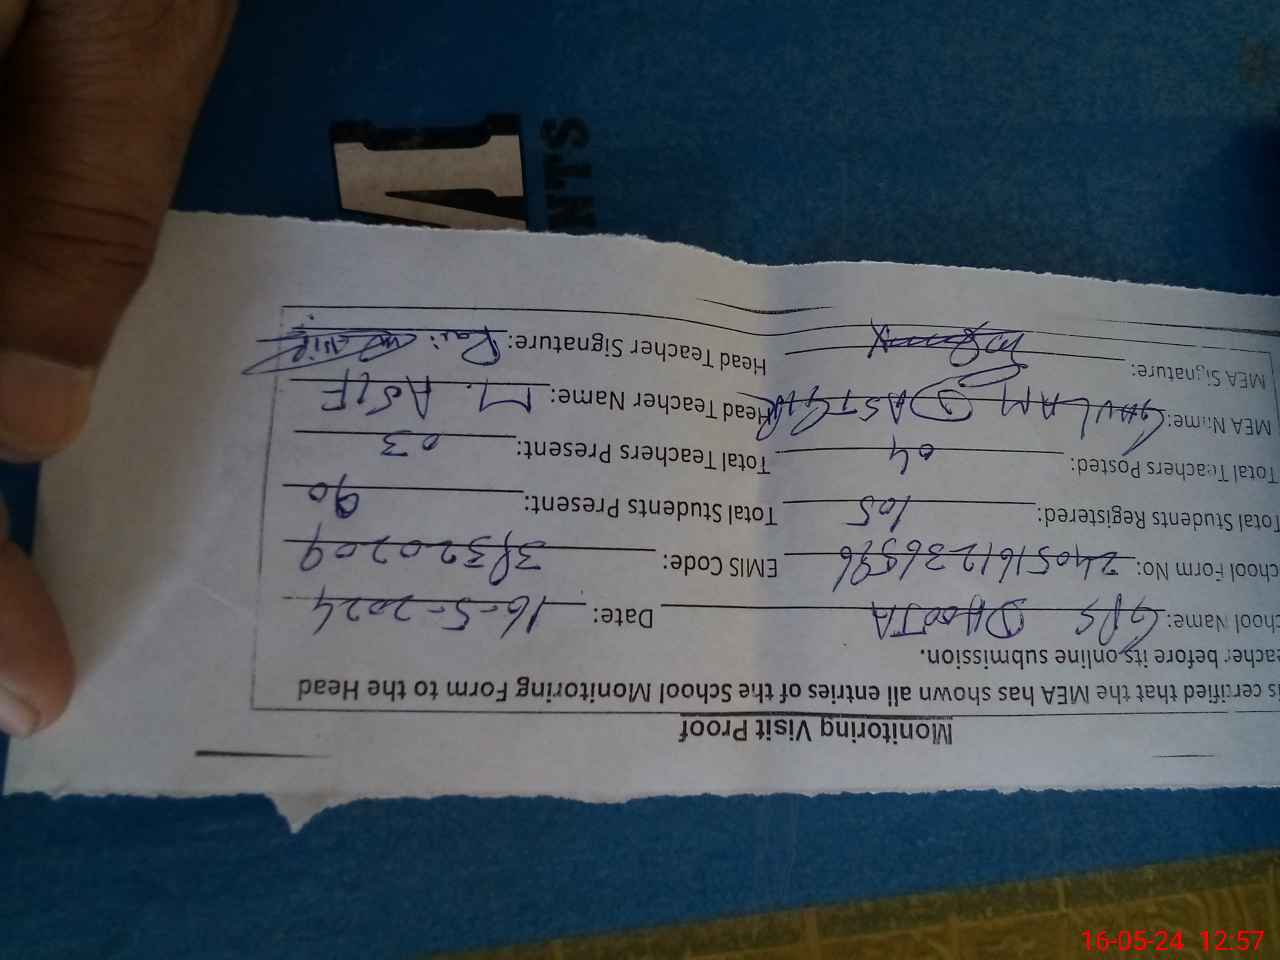 Monitoring Visit Proof
is certified that the MEA has shown all entries of the School Monitoring Form to the Head
eacher before its online submission.
chool Name: GPS DHOOTA Date: 16-5-2024
chool Form No: 2405161236596 EMIS Code: 38320209
Total Students Registered: 105 Total Students Present: 90
Total Teachers Posted: 04 Total Teachers Present: 03
MEA Name: GHULAM DASTGIR Head Teacher Name: M. ASIF
MEA Signature: Head Teacher Signature:
NTS
16-05-24 12:57